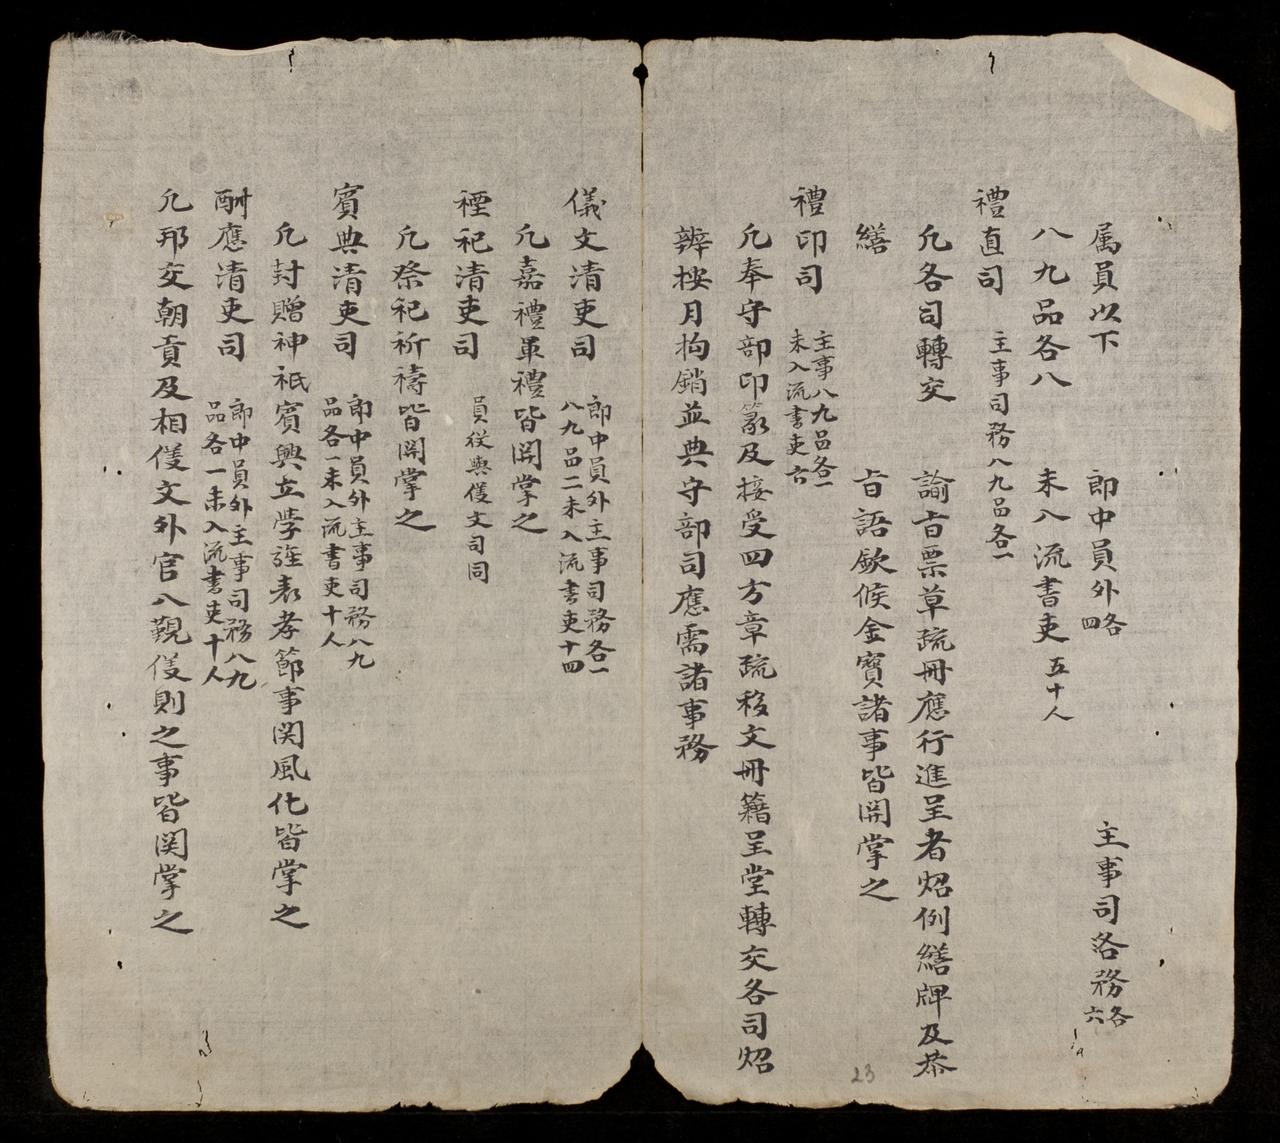 属員以下 郎中員外略四 主事司各務各六
八九品各八 未入流書吏五十人
禮直司 主事司務八九品各一
凡各司轉交 諭旨票草疏冊應行進呈者炤例繕牌及恭
繕 旨語欽候金寶諸事皆関掌之
禮印司 主事八九品各一
未入流書吏六
凡奉守部印篆及接受四方章疏移文冊籍呈堂轉交各司炤
辨按月拘銷並典守部司應需諸事務
儀文清吏司 郎中員外主事司務各一
八九品二未入流書吏十四
凡嘉禮軍禮皆関掌之
禋祀清吏司 員從與儀文司同
凡祭祀祈禱皆関掌之
賓典清吏司 郎中員外主事司務八九
品各一未入流書吏十人
凡封贈神祇賓興立學旌表孝節事関風化皆掌之
酬應清吏司 郎中員外主事司務八九
品各一未入流書吏十人
凡邦交朝貢及相儀文外官入覲儀則之事皆関掌之
23